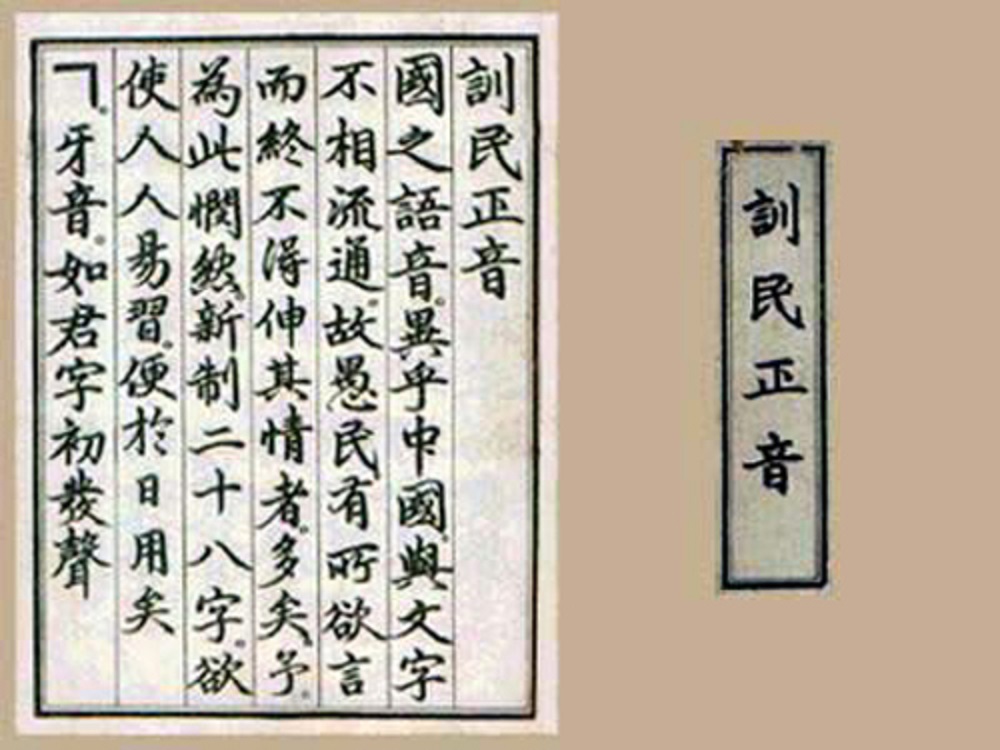 訓民正音
訓民正音
國之語音。異乎中國。與文字
不相流通。故愚民有所欲言
而終不得伸其情者。多矣。予。
為此憫然。新制二十八字。欲
使人人易習。便於日用矣
ㄱ。牙音。如君字初發聲